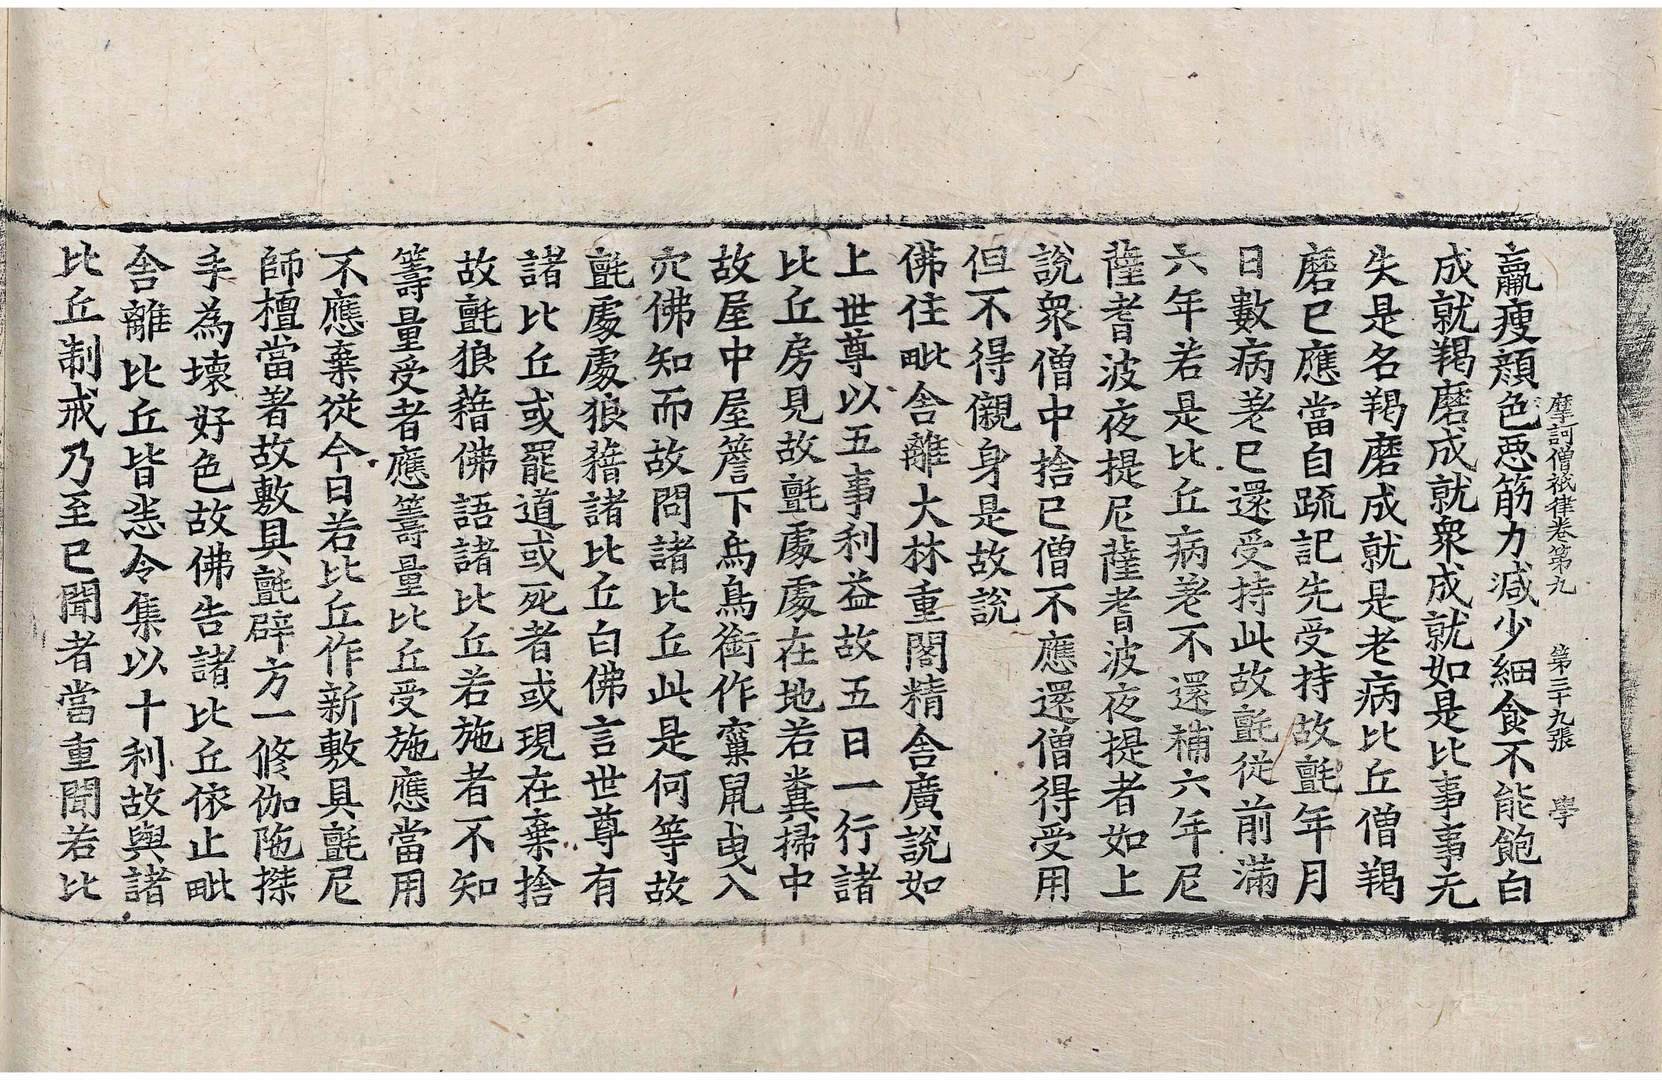 摩訶僧祇律卷第九　第三十九張　學
羸瘦顏色惡筋力減少細食不能飽白
成就羯磨成就衆成就如是比事事无
失是名羯磨成就是老病比丘僧羯
磨已應當自䟽記先受持故氈年月
日數病差已還受持此故氈從前滿
六年若是比丘病差不還補六年尼
薩耆波夜提尼薩耆波夜提者如上
說衆僧中捨已僧不應還僧得受用
但不得儭身是故說
佛住毗舍離大林重閣精舍廣說如
上世尊以五事利益故五日一行諸
比丘房見故氈處處在地若糞掃中
故屋中屋簷下烏鳥銜作窠鼠曳入
穴佛知而故問諸比丘此是何等故
氈處處狼藉諸比丘白佛言世尊有
諸比丘或罷道或死者或現在棄捨
故氈狼藉佛語諸比丘若施者不知
籌量受者應籌量比丘受施應當用
不應棄從今日若比丘作新敷具氈尼
師檀當著故敷具氈辟方一修伽陁搩
手為壞好色故佛告諸比丘依止毗
舍離比丘皆悉令集以十利故與諸
比丘制戒乃至已聞者當重聞若比